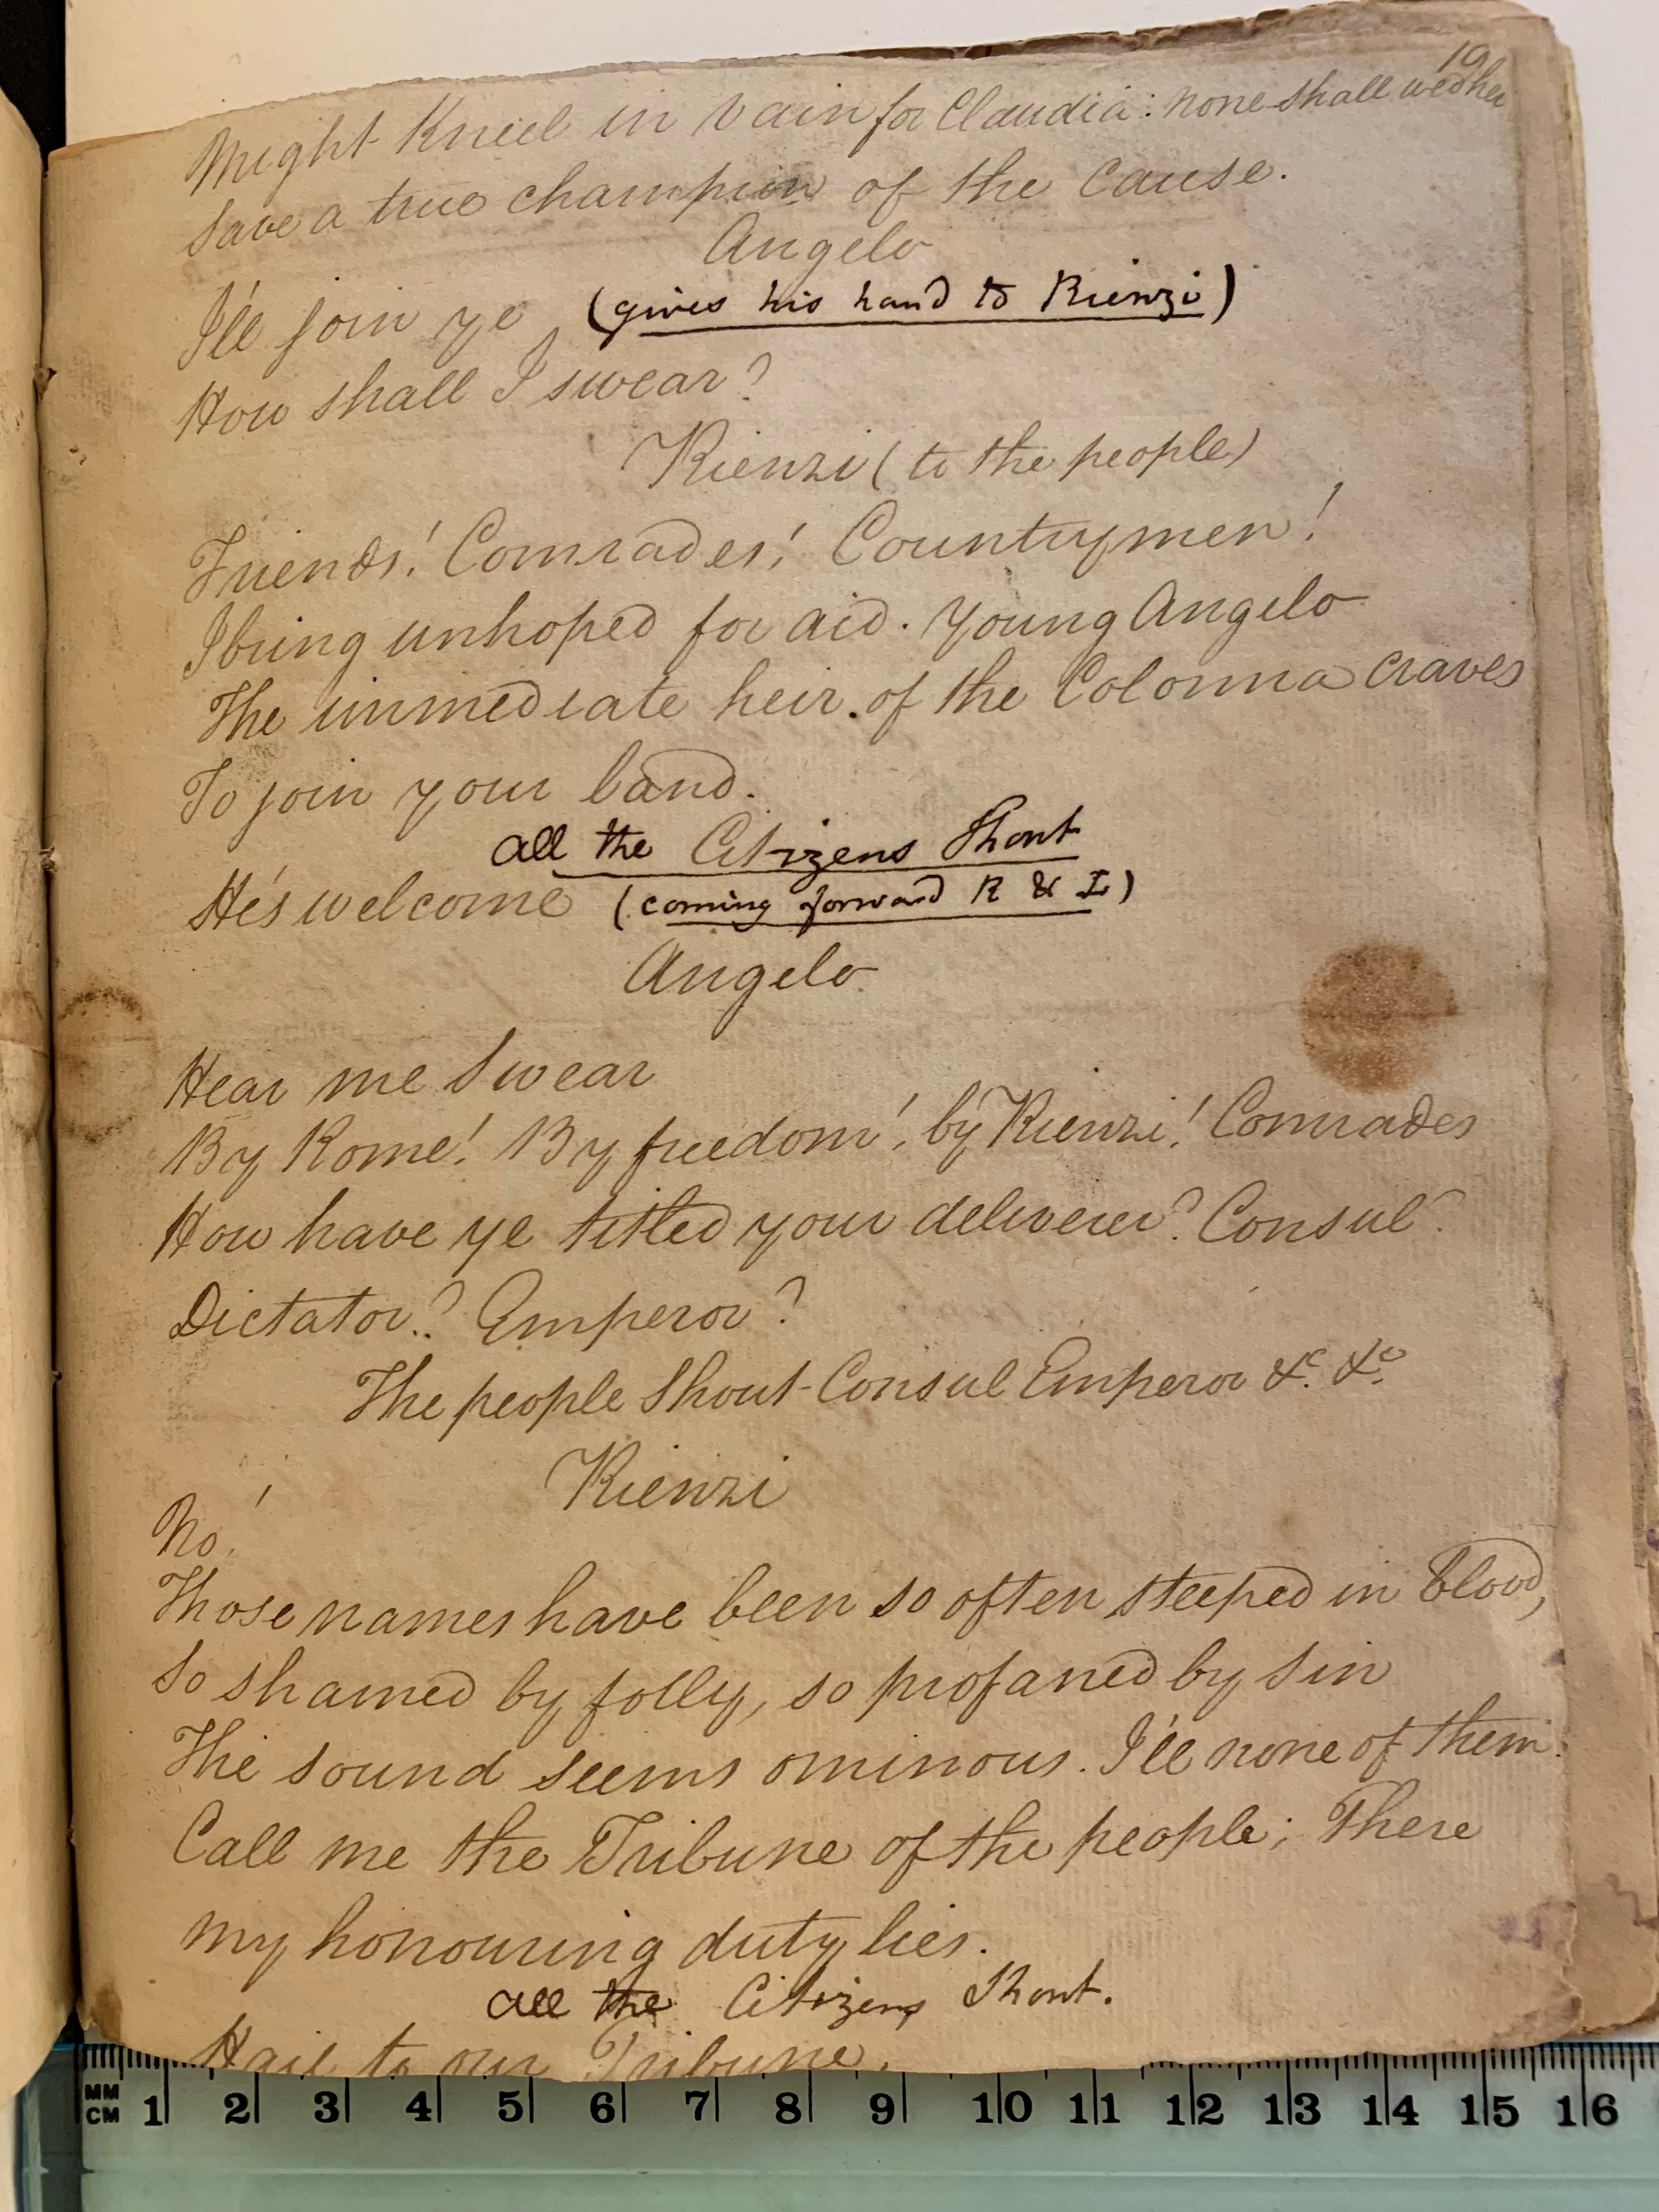 19
Might Kneel in vain for Claudia: none shall wed her
Save a true champion of the Cause.
Angelo
I'll join ye (gives his hand to Rienzi)
How shall I swear?
Rienzi (to the people)
Friends! Comrades! Countrymen!
I bring unhoped for aid. Young Angelo
The immediate heir of the Colonna craves
To join your band.
all the Citizens Shout
He's welcome (coming forward R & L)
Angelo
Hear me Swear
By Rome! By freedom! by Rienzi! Comrades
How have ye titled your deliverer? Consul?
Dictator? Emperor?
The people Shout - Consul Emperor &c. &c.
Rienzi
No!
Those names have been so often steeped in blood,
So shamed by folly, so profaned by sin
The sound seems ominous. I'll none of them.
Call me the Tribune of the people; There
my honouring duty lies.
all the Citizens Shout.
Hail to our Tribune.
MM
CM 1 2 3 4 5 6 7 8 9 10 11 12 13 14 15 16